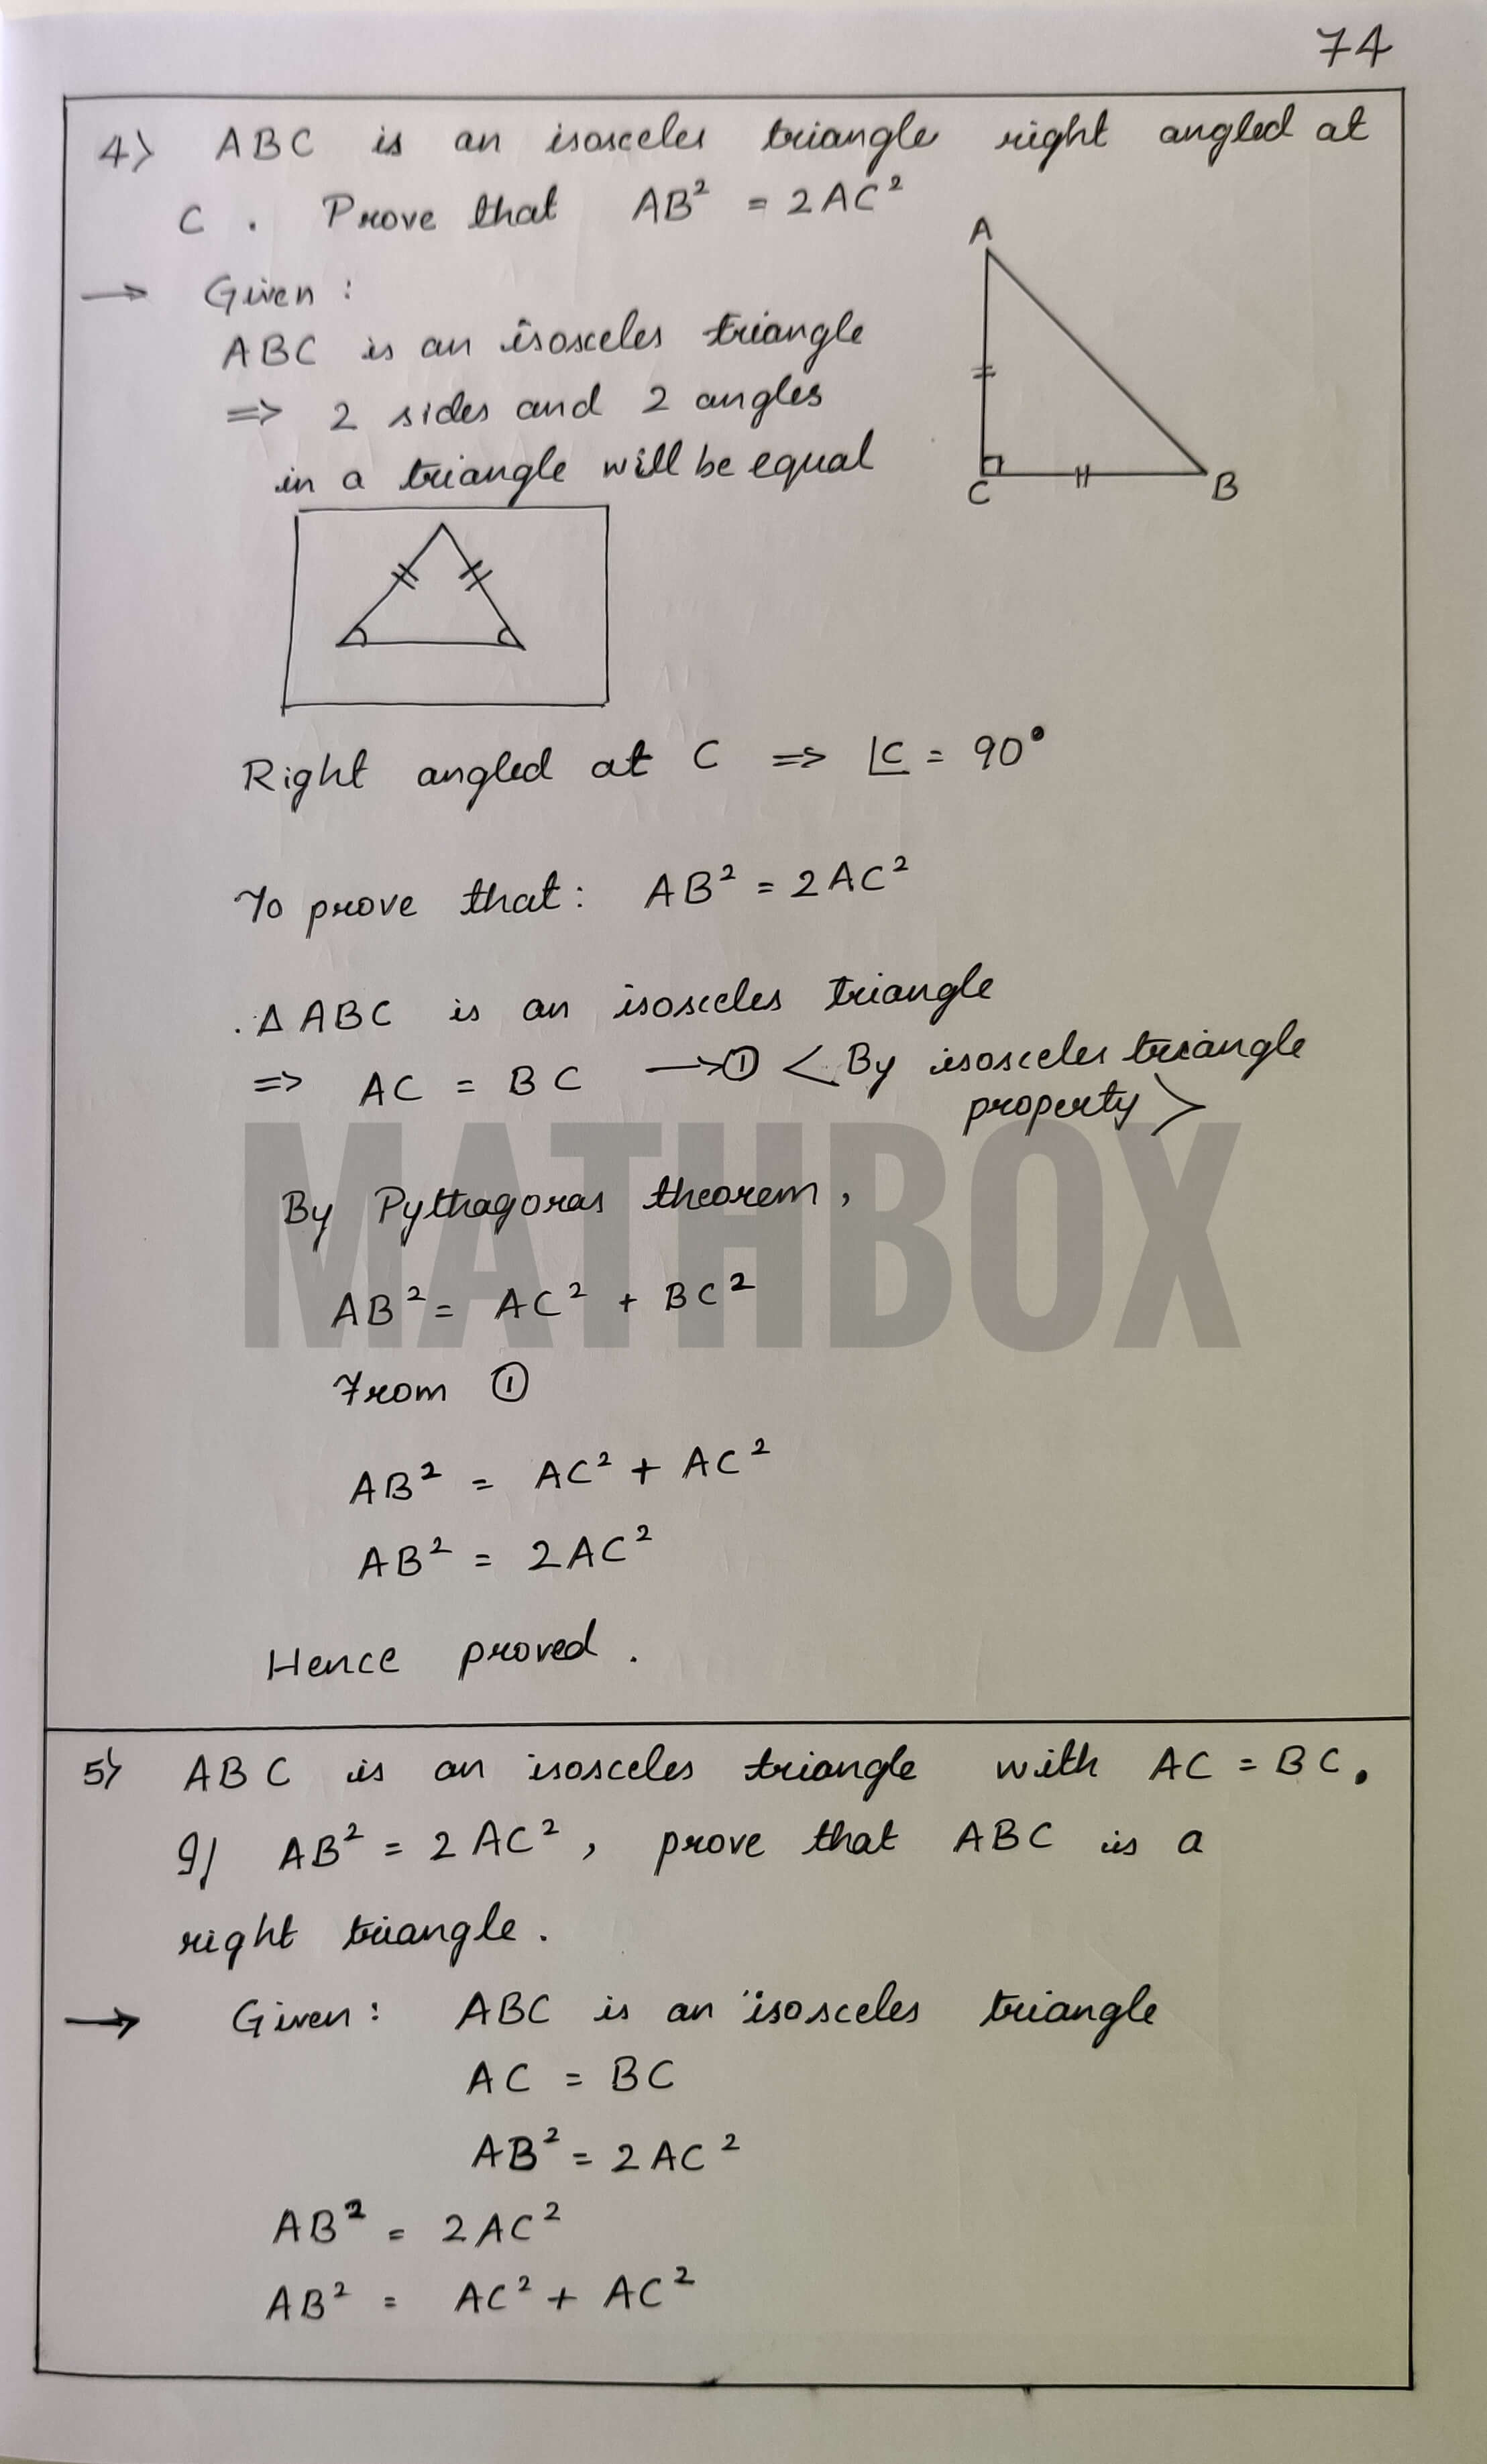 74
4) ABC is an isosceles triangle right angled at
C . Prove that AB² = 2AC²
→ Given :
ABC is an isosceles triangle
⇒ 2 sides and 2 angles
in a triangle will be equal
A
C
B
Right angled at C ⇒ ∠C = 90°
To prove that : AB² = 2AC²
∴ Δ ABC is an isosceles triangle
⇒ AC = BC → ① < By isosceles triangle
property >
MATHBOX
By Pythagoras theorem ,
AB² = AC² + BC²
From ①
AB² = AC² + AC²
AB² = 2AC²
Hence proved .
5) ABC is an isosceles triangle with AC = BC .
If AB² = 2AC² , prove that ABC is a
right triangle .
→ Given : ABC is an isosceles triangle
AC = BC
AB² = 2AC²
AB² = 2AC²
AB² = AC² + AC²